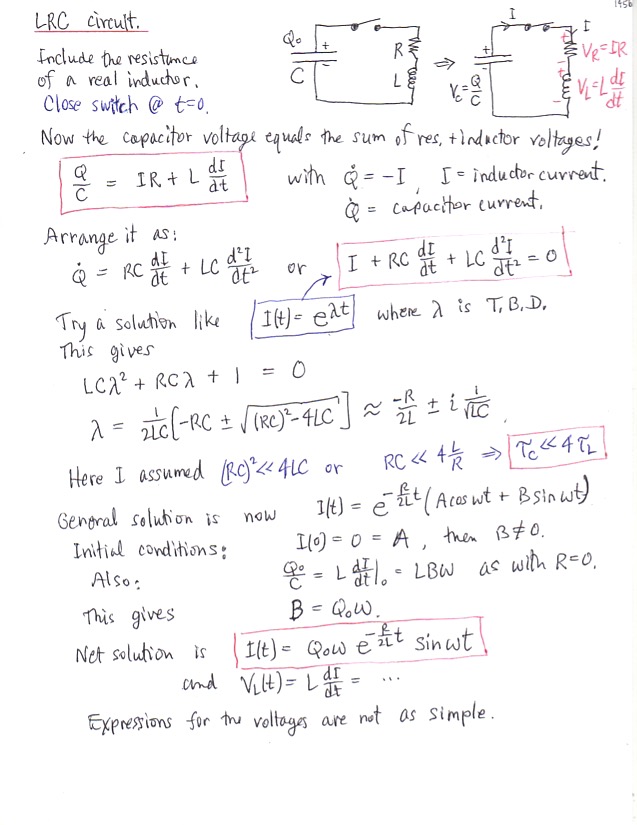 1956
LRC circuit.
Include the resistance
of a real inductor.
Close switch @ t=0.
Q₀ + − C R L ⇒ I + − V_C = Q/C I + − V_R = IR + − V_L = L dI/dt
Now the capacitor voltage equals the sum of res. + inductor voltages!
Q/C = IR + L dI/dt with Q̇ = −I, I = inductor current.
Q̇ = capacitor current.
Arrange it as:
Q̇ = RC dI/dt + LC d²I/dt² or I + RC dI/dt + LC d²I/dt² = 0
Try a solution like I(t) = e^{λt} where λ is T.B.D.
This gives
LCλ² + RCλ + 1 = 0
λ = 1/2LC [−RC ± √((RC)² − 4LC)] ≈ −R/2L ± i 1/√LC
Here I assumed (RC)² << 4LC or RC << 4 L/R ⇒ τ_C << 4τ_L
General solution is now I(t) = e^{−R/2L t} (A cos ωt + B sin ωt)
Initial conditions: I(0) = 0 = A, then B ≠ 0.
Also: Q₀/C = L dI/dt|₀ = LBω as with R=0.
This gives B = Q₀ω.
Net solution is I(t) = Q₀ω e^{−R/2L t} sin ωt
and V_L(t) = L dI/dt = ...
Expressions for the voltages are not as simple.